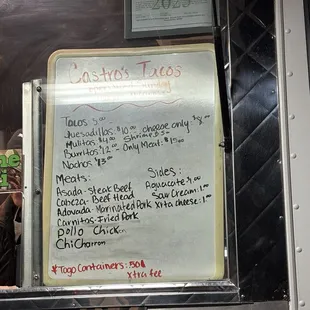 2025
Castro's Tacos
Tacos 3.00
Quesadillas: $10.00 cheese only $8.00
Mulitas: $4.00 Shrimp
Burritos: $12.00 - Only Meat: $15.00
Nachos $13.00
Meats:
Asada - Steak Beef
Cabeza - Beef Head
Adovada - Marinated Pork
Carnitas - Fried Pork
Pollo Chick..
Chicharron
Sides:
Aguacate $1.00
Sour Cream: 1.00
Xtra cheese: 1.00
* Togo Containers: .50¢
Xtra fee